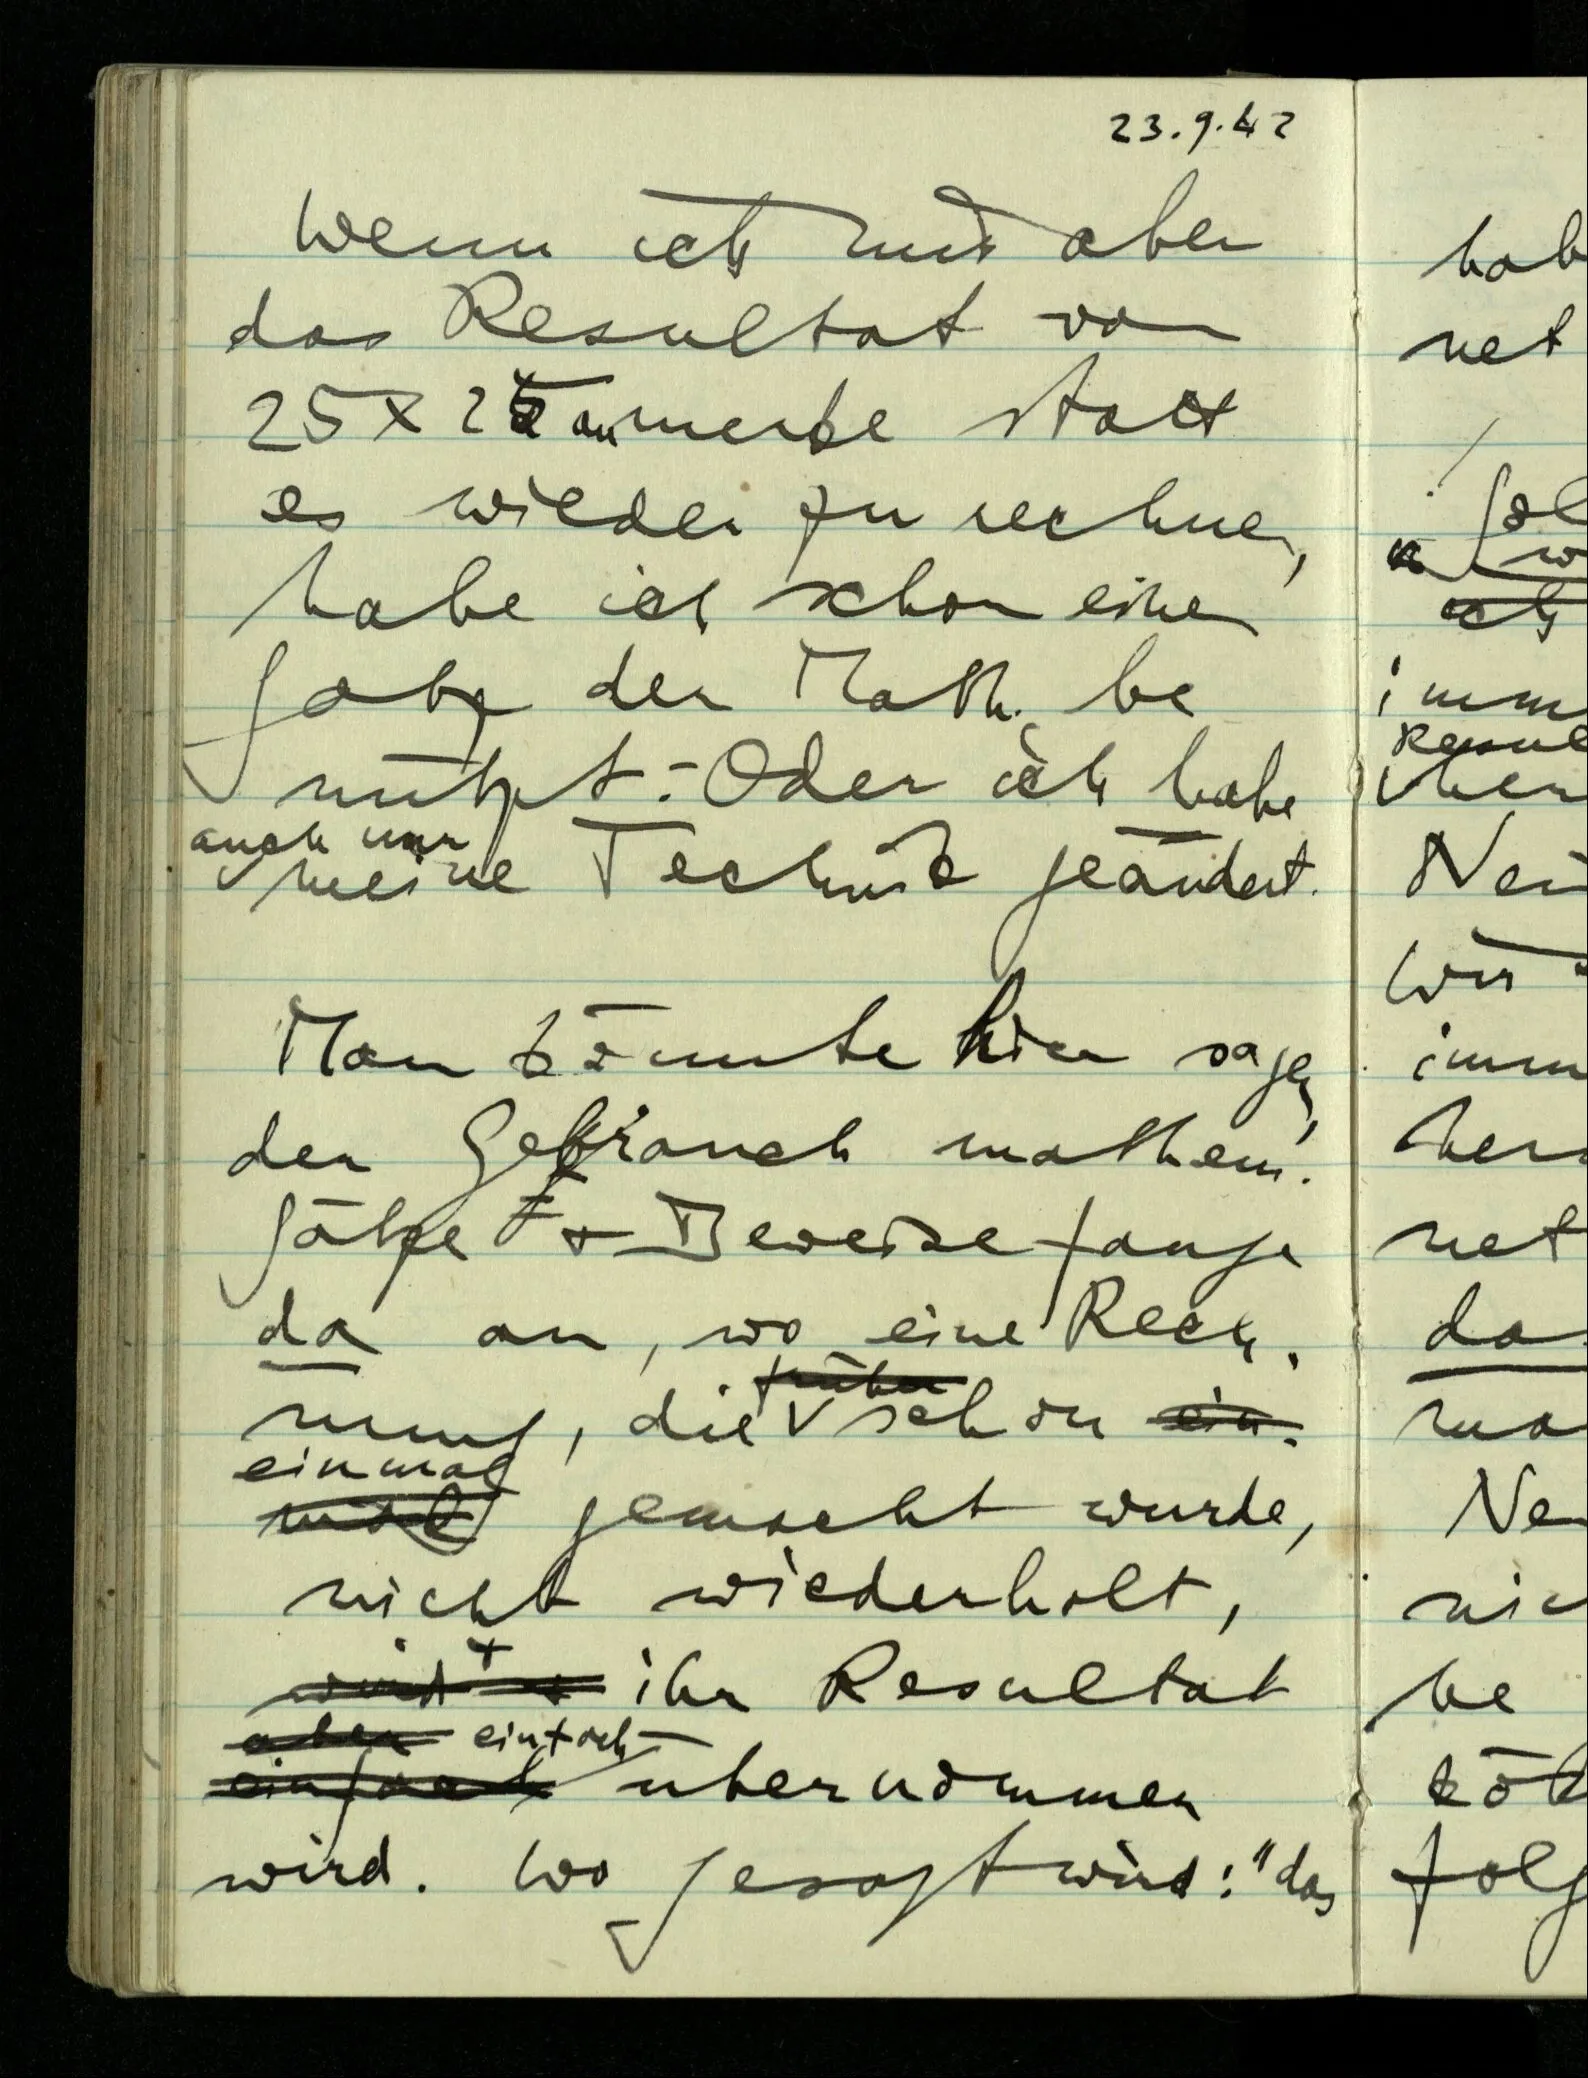 23.9.42
Wenn ich mir aber
das Resultat von
25 x 25 anmerke statt
es wieder zu rechnen,
habe ich schon einen
Satz der Math. be
nützt. – Oder ich habe
auch nur
meine Technik geändert.
Man könnte hier sagen,
der Gebrauch mathem.
Sätze & Beweise fange
da an, wo eine Rech-
nung, die früher schon ein-
einmal
mal gemacht wurde,
nicht wiederholt,
wird & ihr Resultat
aber einfach
einfach übernommen
wird. Wo gesagt wird: "das
hab
net
imm
Resul
Nei
Wir
imm
net
das
Ne
nic
be
folg